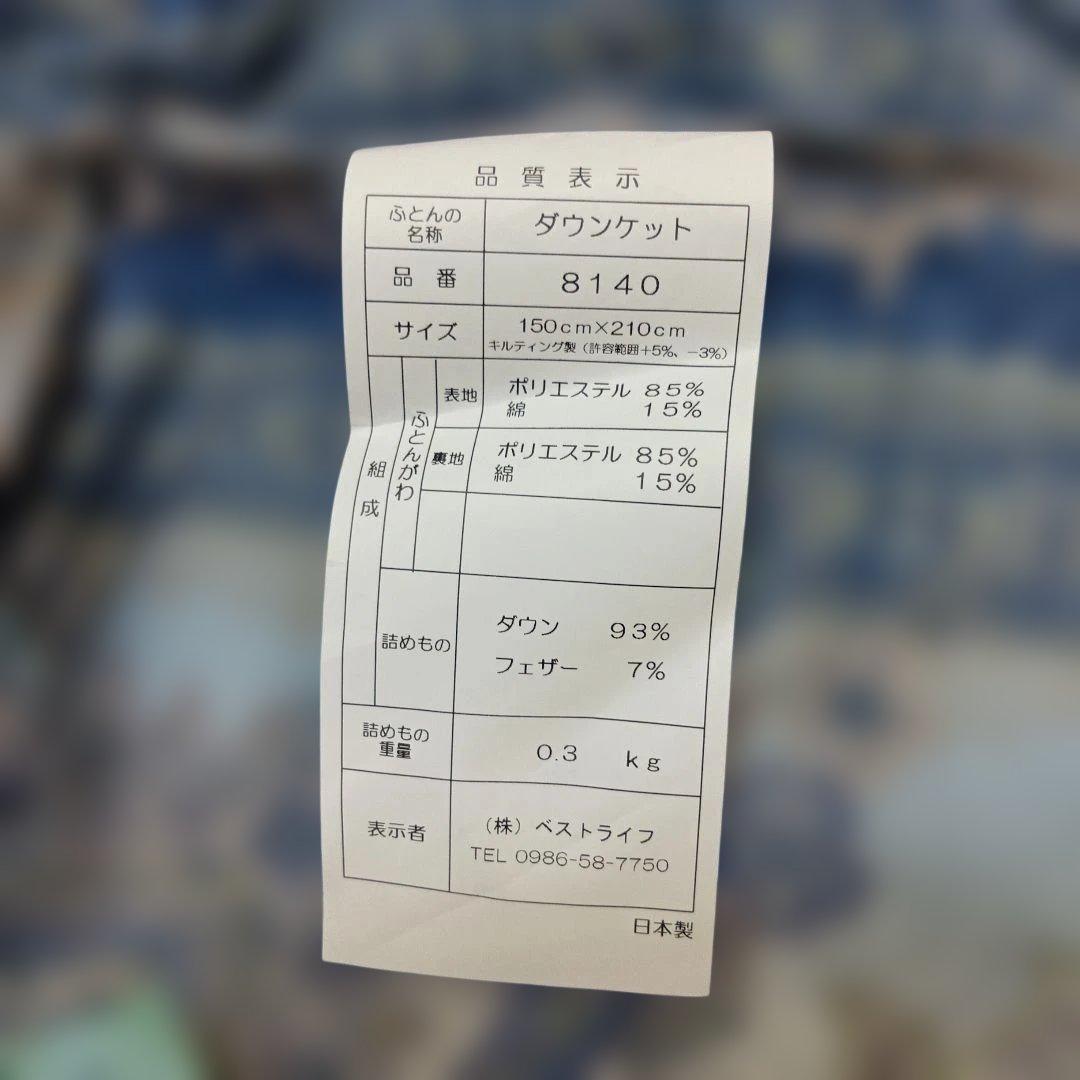 品質表示
ふとんの
名称
ダウンケット
品番
8140
サイズ
150cm×210cm
キルティング製（許容範囲＋5%、－3%）
組成
ふとんがわ
表地
ポリエステル 85%
綿 15%
裏地
ポリエステル 85%
綿 15%
詰めもの
ダウン 93%
フェザー 7%
詰めもの
重量
0.3 kg
表示者
（株）ベストライフ
TEL 0986-58-7750
日本製